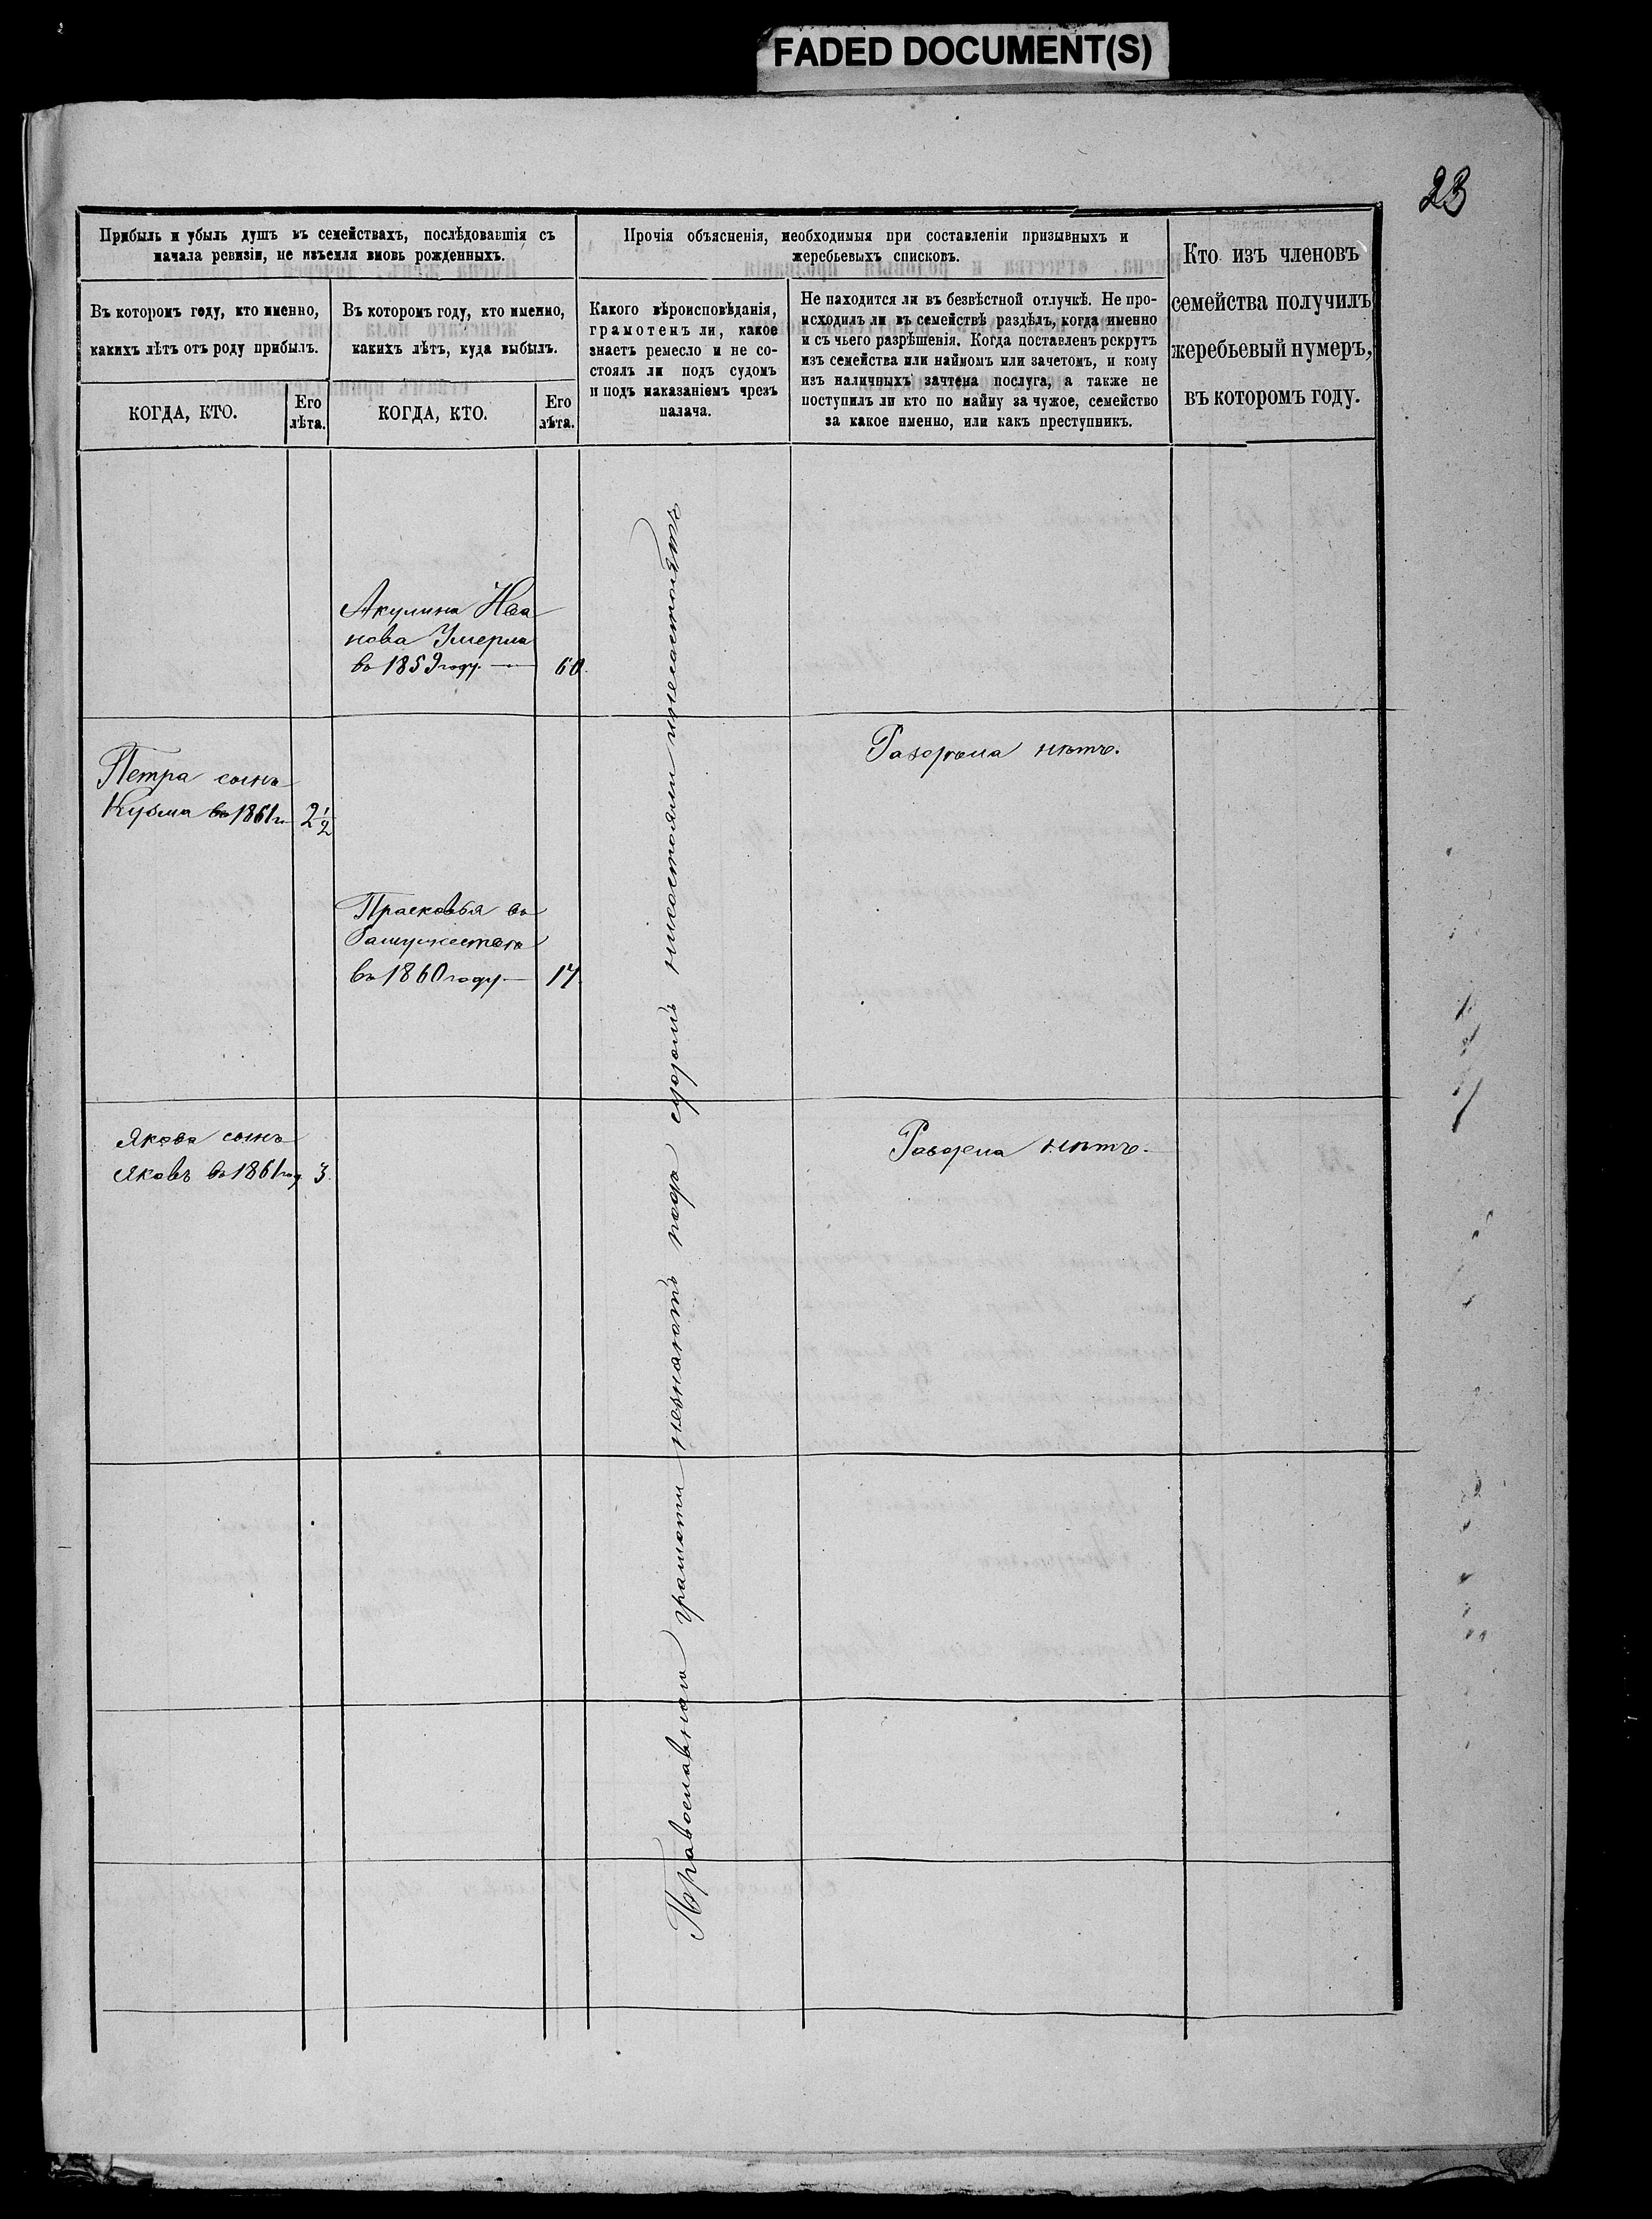 FADED DOCUMENT(S)
23
Прибыль и убыль душъ въ семействахъ, послѣдовавшія съ
начала ревизіи, не изъемля вновь рожденныхъ.
Прочія объясненія, необходимыя при составленіи призывныхъ и
жеребьевыхъ списковъ.
Кто изъ членовъ
семейства получилъ
жеребьевый нумеръ,
въ которомъ году.
Въ которомъ году, кто именно,
какихъ лѣтъ отъ роду прибылъ.
Въ которомъ году, кто именно,
какихъ лѣтъ, куда выбылъ.
Какого вѣроисповѣданія,
грамотенъ ли, какое
знаетъ ремесло и не со-
стоялъ ли подъ судомъ
и подъ наказаніемъ чрезъ
палача.
Не находится ли въ безвѣстной отлучкѣ. Не про-
исходилъ ли въ семействѣ раздѣлъ, когда именно
и съ чьего разрѣшенія. Когда поставленъ рекрутъ
изъ семейства или наймомъ или зачетомъ, и кому
изъ наличныхъ зачтена послуга, а также не
поступилъ ли кто по найму за чужое, семейство
за какое именно, или какъ преступникъ.
КОГДА, КТО.
Его
лѣта.
КОГДА, КТО.
Его
лѣта.
Акулина Ива
нова Умерла
въ 1859 году. — 60.
Петра сынъ
Кузма въ 1861 г. 2 1/2
Раздѣла нѣтъ.
Прасковья въ
Замужество
въ 1860 году — 17
Якова сынъ
Яковъ въ 1861 году 3.
Раздела нѣтъ.
Православнаго грамоти незнаютъ подъ судомъ нисостояли инесостоятъ